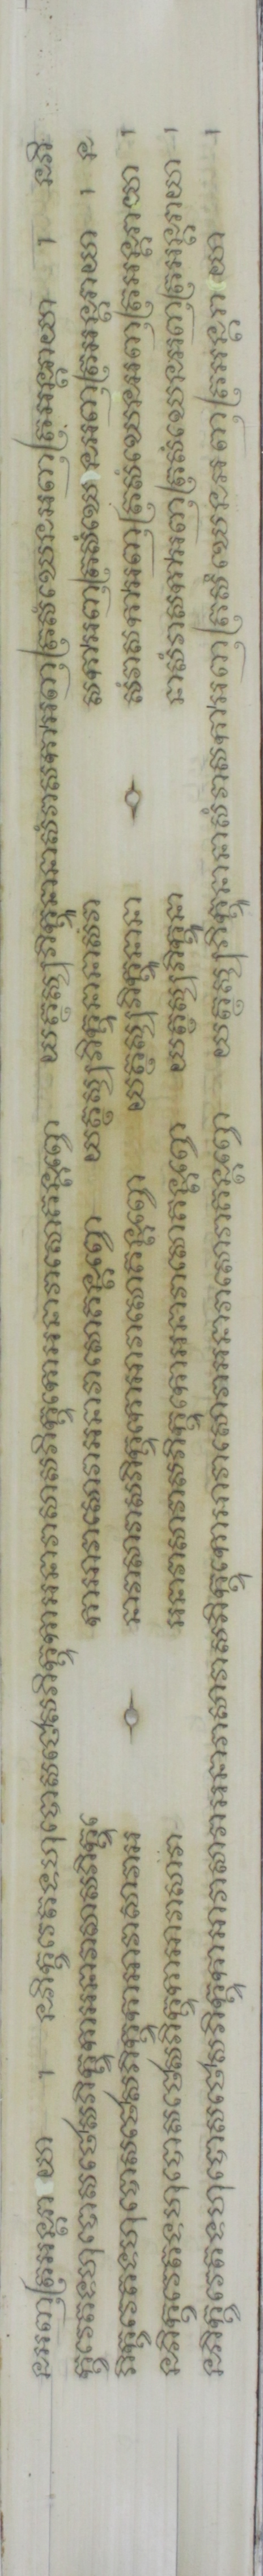 នអញ្ញត្រអន្តរាយា ។ នភិក្ខវេតទហុបោសថេសភិក្ខុកាអនាវាសាសភិក្ខុកោអនាវាសោគន្តព្ពោ យត្ថស្សុភិក្ខូនានាសំវាសកាអញ្ញត្រសំឃេនអញ្ញត្រអន្តរាយា ។ នភិ
ក្ខវេតទហុបោសថេសភិក្ខុកាអនាវាសាសភិក្ខុកោអាវាសោវាអនាវាសោគន្តព្ពោ យត្ថស្សុភិក្ខូនានាសំវាសកាអញ្ញត្រសំឃេនអញ្ញត្រអន្តរាយា ។ ន
ភិក្ខវេតទហុបោសថេសភិក្ខុកាអាវាសាវាអនាវាសាវាសភិក្ខុកោអាវាសោគន្តព្ពោ យត្ថស្សុភិក្ខូនានាសំវាសកាអញ្ញត្រសំឃេនអញ្ញត្រអន្តរាយា ។
នភិក្ខវេតទហុបោសថេសភិក្ខុកាអាវាសាវាអនាវាសាវាសភិក្ខុកោអនាវាសោគន្តព្ពោ យត្ថស្សុភិក្ខូនានាសំវាសកាអញ្ញត្រសំឃេនអញ្ញត្រអន្តរាយា ។
នភិក្ខវេតទហុបោសថេសភិក្ខុកាអាវាសាវាអនាវាសាវាសភិក្ខុកោអាវាសោវាអនាវាសោវាគន្តព្ពោ យត្ថស្សុភិក្ខូនានាសំវាសកាអញ្ញត្រសំឃេនអញ្ញត្រអន្តរាយា ។